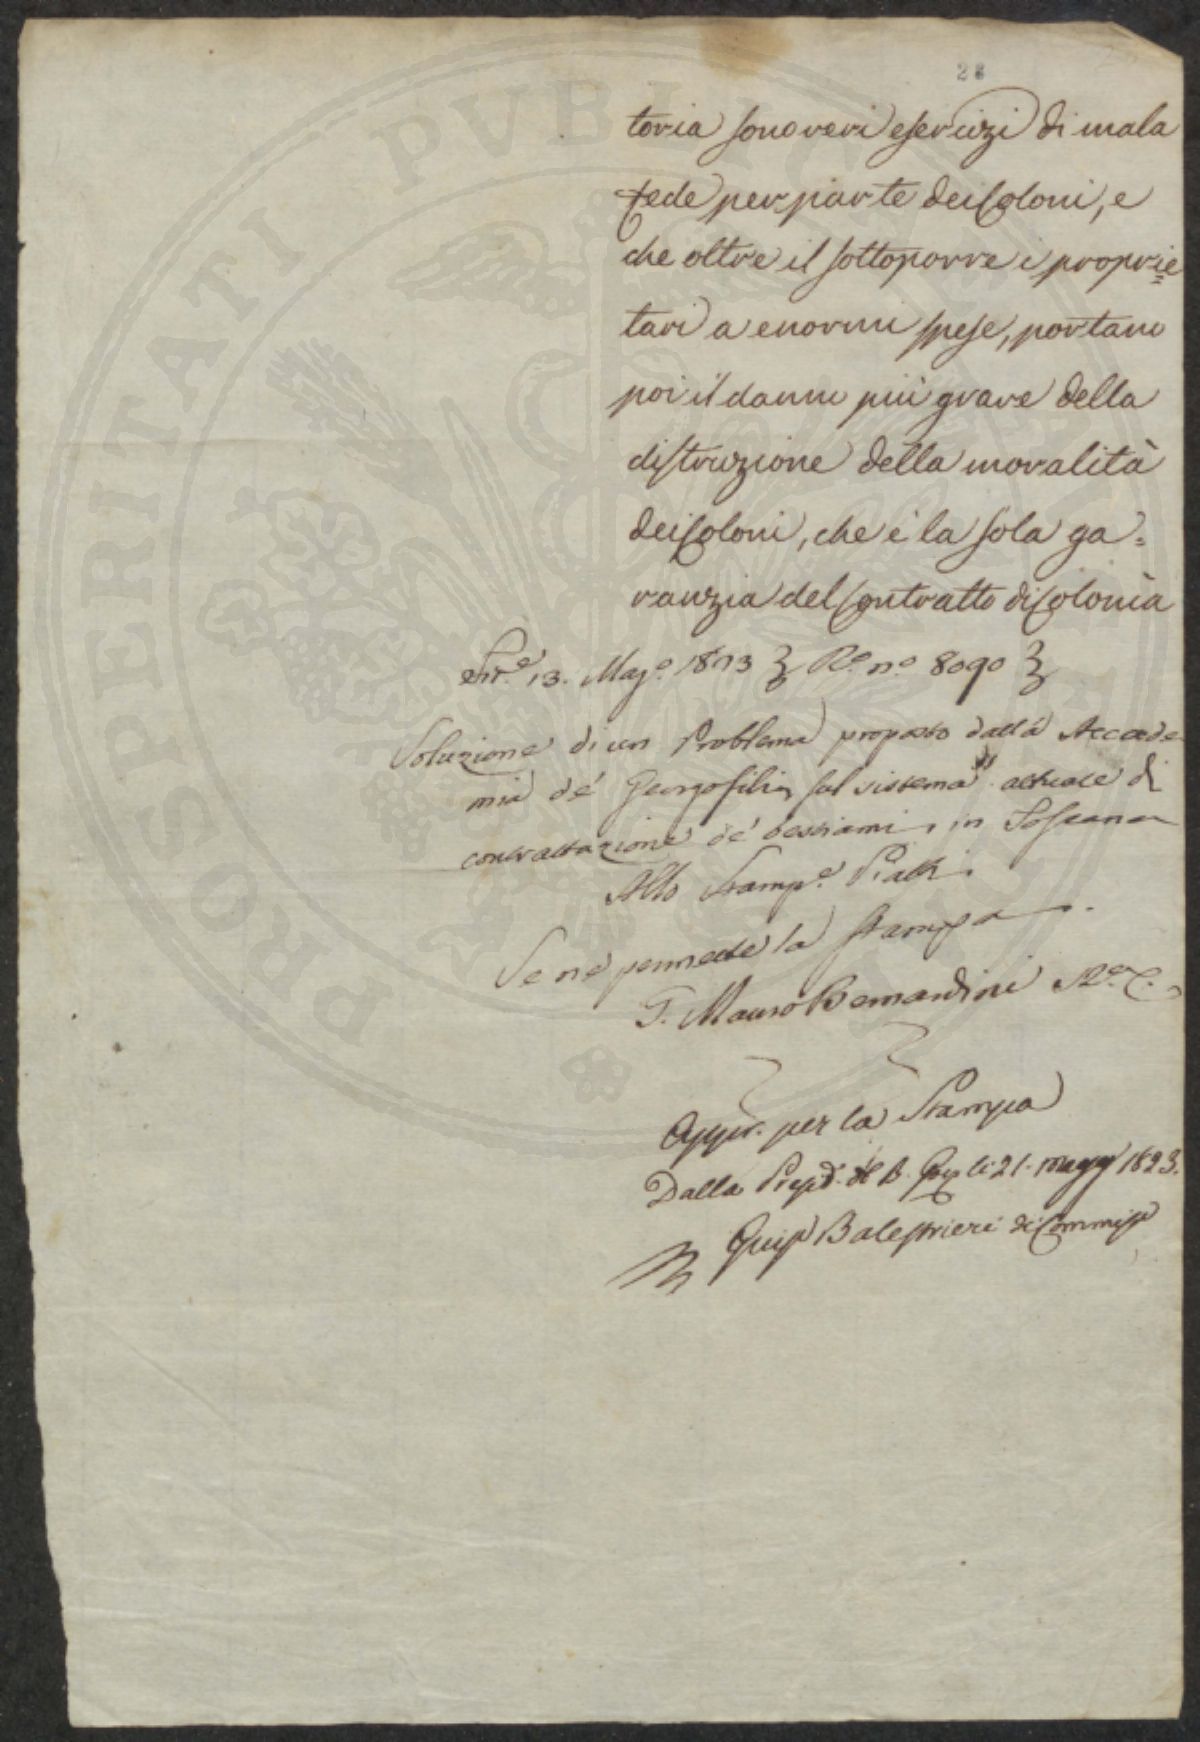 28
toria sono veri esercizi di mala
fede per parte dei Coloni, e
che oltre il sottoporre i proprie=
tari a enormi spese, portano
poi il danno più grave della
distruzione della moralità
dei Coloni, che è la sola ga=
ranzia del Contratto di Colonìa
13. Mag.o 1823 R.o n.o 8090
Soluzione di un Problema proposto dalla Accade
mia de' Georgofili, sul sistema attuale di
contrattazione de' bestiami, in Toscana
Allo Stamp.e Piatti
Se ne permette la stampa.
F. Mauro Bernardini R.o C.
Appr. per la Stampa
Dalla li 21. magg 1823.
Balestrieri di Commiss
PROSPERITATI PVBLICAE